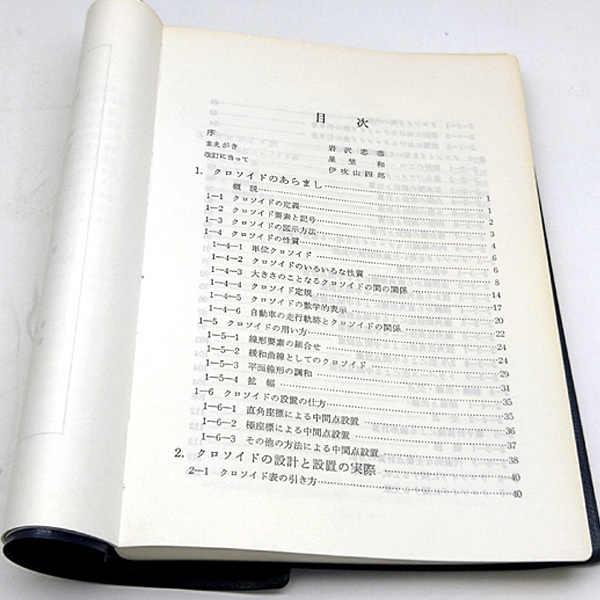 目次
序 岩沢忠恭
まえがき 星埜和
改訂に当って 伊吹山四郎
1. クロソイドのあらまし 1
概説 1
1—1 クロソイドの定義 1
1—2 クロソイド要素と記号 2
1—3 クロソイドの図示方法 3
1—4 クロソイドの性質 4
1—4—1 単位クロソイド 6
1—4—2 クロソイドのいろいろな性質 6
1—4—3 大きさのことなるクロソイドの間の関係 8
1—4—4 クロソイド定規 14
1—4—5 クロソイドの数学的表示 17
1—4—6 自動車の走行軌跡とクロソイドの関係 20
1—5 クロソイドの用い方 22
1—5—1 線形要素の組合せ 24
1—5—2 緩和曲線としてのクロソイド 24
1—5—3 平面線形の調和 29
1—5—4 拡幅 31
1—6 クロソイドの設置の仕方 35
1—6—1 直角座標による中間点設置 35
1—6—2 極座標による中間点設置 36
1—6—3 その他の方法による中間点設置 37
2. クロソイドの設計と設置の実際 38
2—1 クロソイド表の引き方 40
40